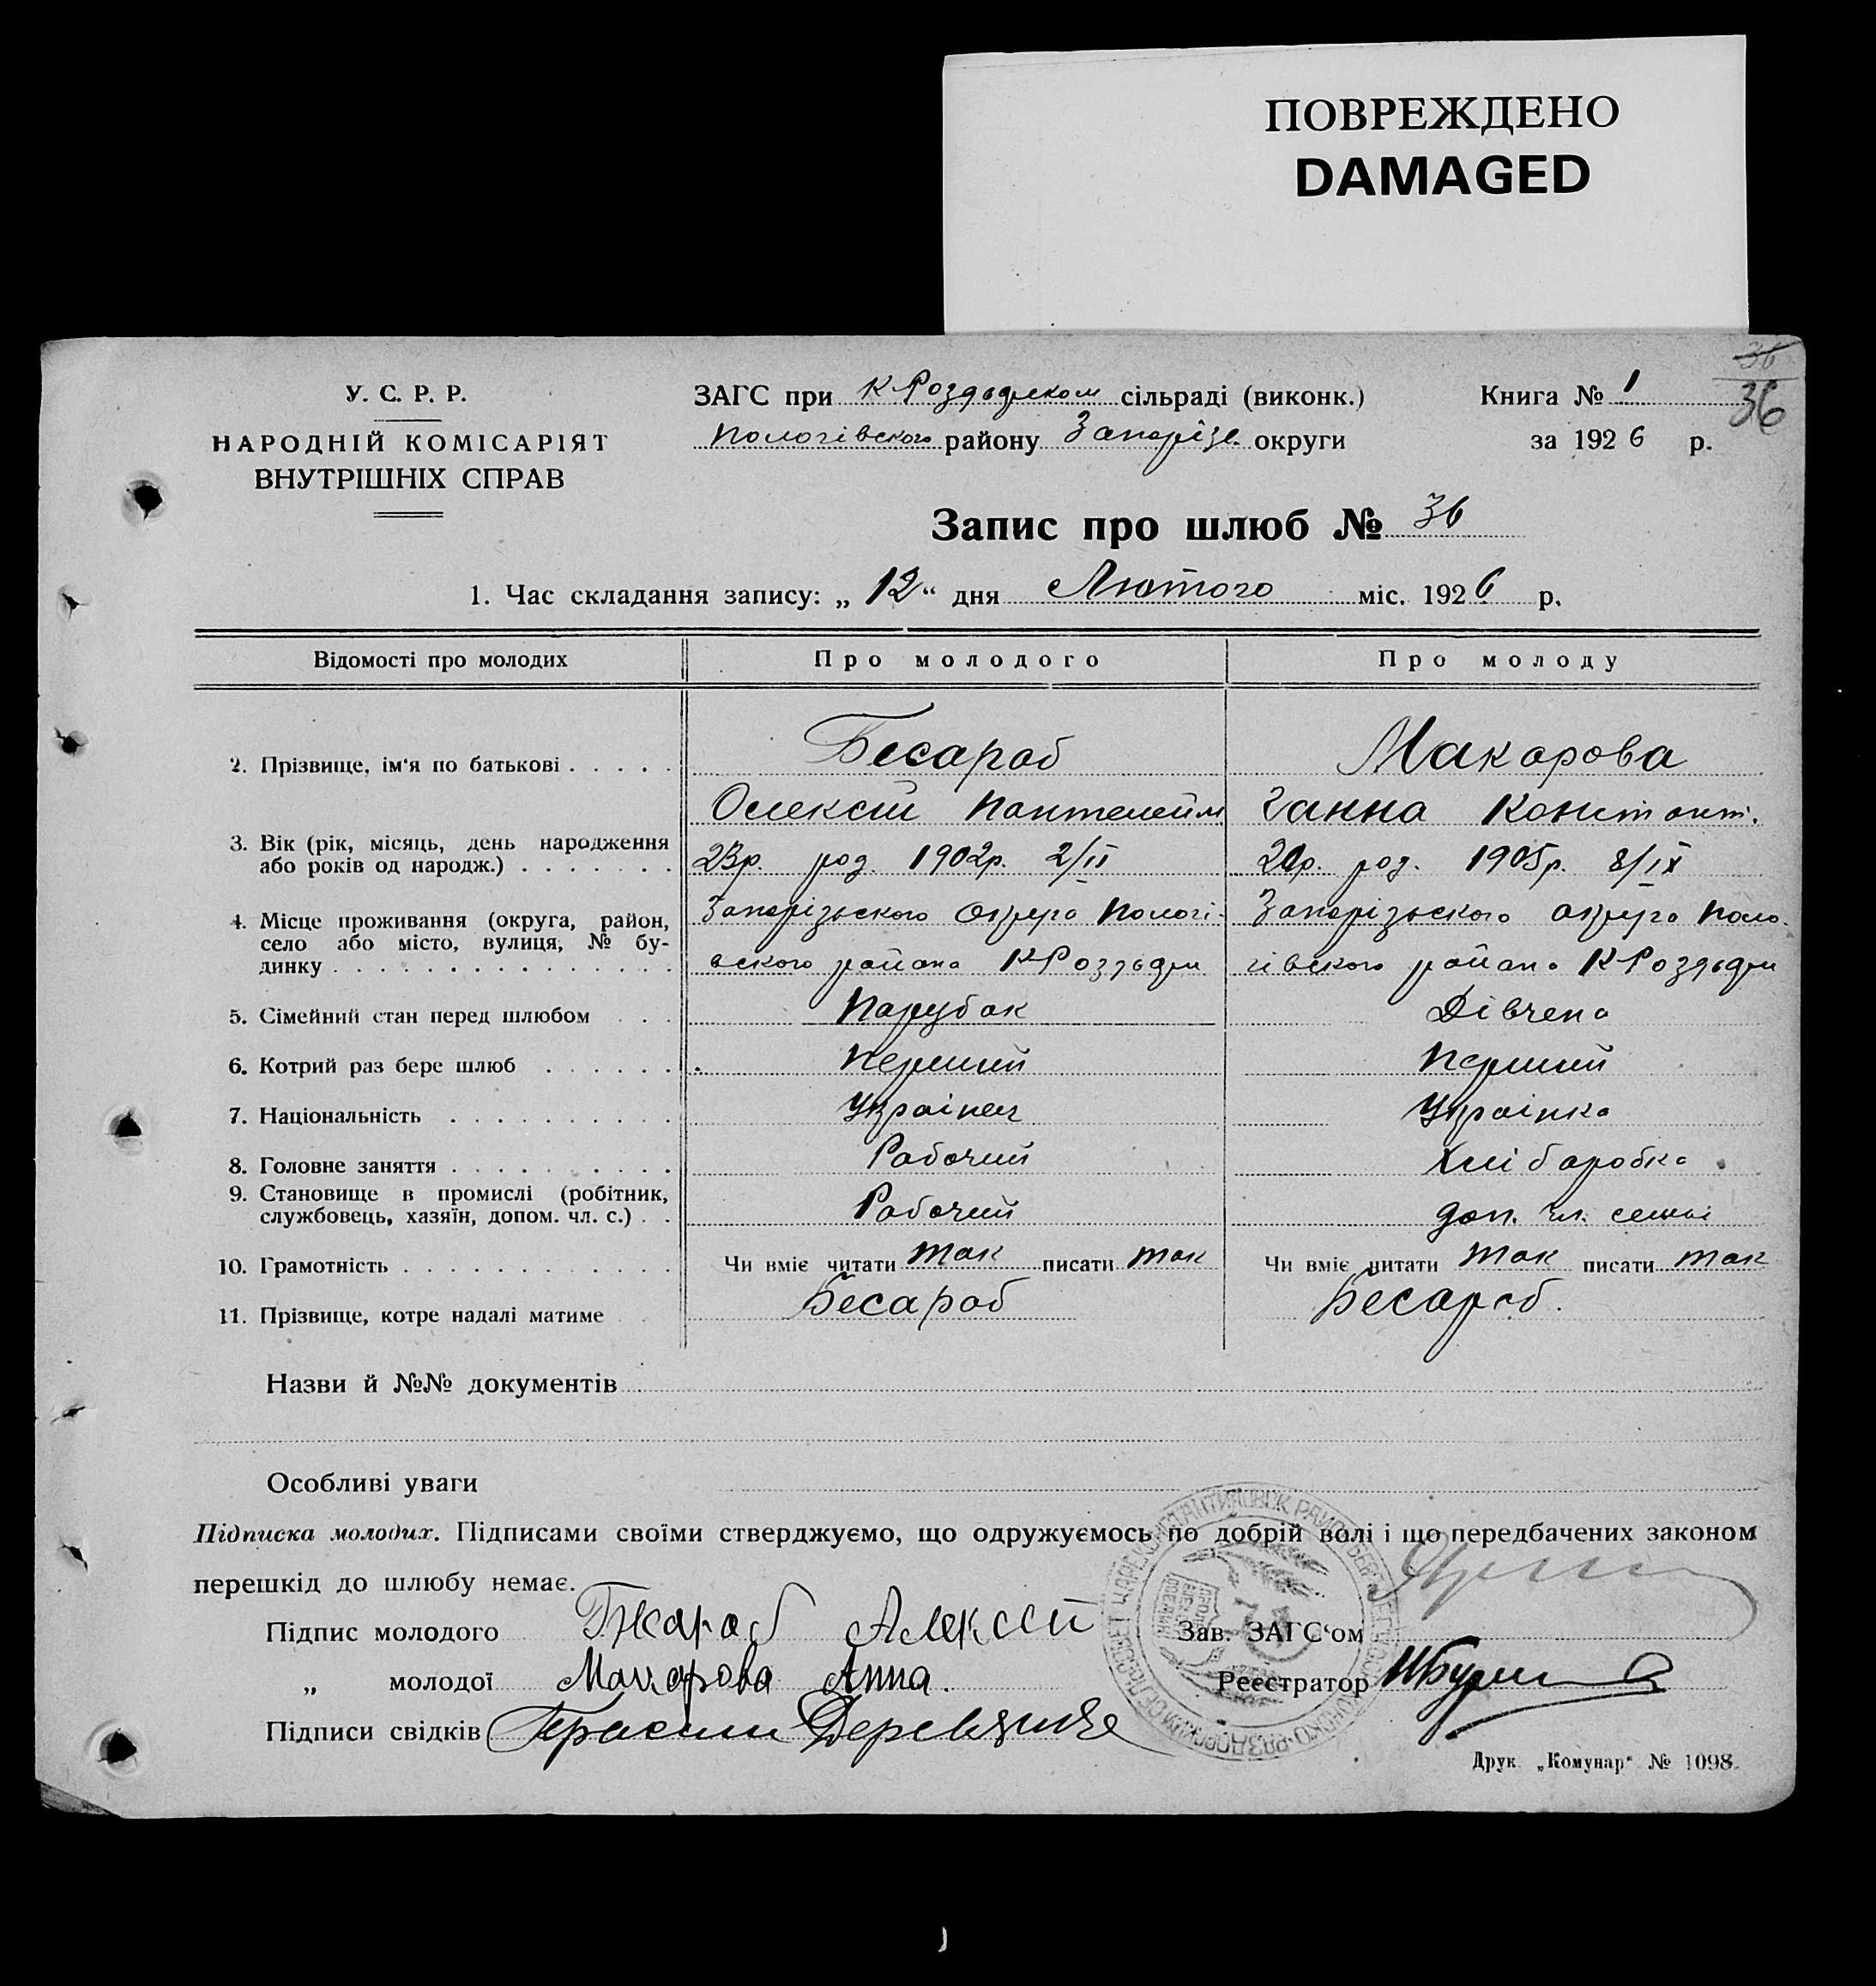 ПОВРЕЖДЕНО
DAMAGED
36
36
У. С. Р. Р.
НАРОДНІЙ КОМІСАРІЯТ
ВНУТРІШНІХ СПРАВ
ЗАГС при К Роздорском сільраді (виконк.)
Пологівского району Запоріз. округи
Книга № 1
за 1926 р.
Запис про шлюб № 36
1. Час складання запису: „ 12 “ дня Лютого міс. 1926 р.
Відомості про молодих Про молодого Про молоду
2. Прізвище, ім'я по батькові . . . . . Бесараб Макарова
Олексій Пантелейм Ганна Констант.
3. Вік (рік, місяць, день народження
або років од народж.) . . . . . . . 23р. род. 1902р. 2/II 20р. род. 1905р. 8/IX
4. Місце проживання (округа, район, Запорізьского Округа Пологі- Запорізьского округа Поло-
село або місто, вулиця, № бу-
динку . . . . . . . . . . . . . . . вского района К Роздори гівского района К Роздори
5. Сімейний стан перед шлюбом . . . Парубак Дівчена
6. Котрий раз бере шлюб . . . . . . Перший Перший
7. Національність . . . . . . . . . . Украінец Украінка
8. Головне заняття . . . . . . . . . . Рабочий Хлібаробка
9. Становище в промислі (робітник,
службовець, хазяїн, допом. чл. с.) . . Рабочий доп. чл. семьі
10. Грамотність . . . . . . . . . . . . Чи вміє читати так писати так Чи вміє читати так писати так
11. Прізвище, котре надалі матиме Бесараб Бесараб.
Назви й №№ документів
Особливі уваги
Підписка молодих. Підписами своїми стверджуємо, що одружуємось по добрій волі і що передбачених законом
перешкід до шлюбу немає.
Підпис молодого Бесараб Алексей Зав. ЗАГС‘ом
„ молодої Макарова Анна. Реєстратор
Підписи свідків Герасим
Друк „Комунар“ № 1098.